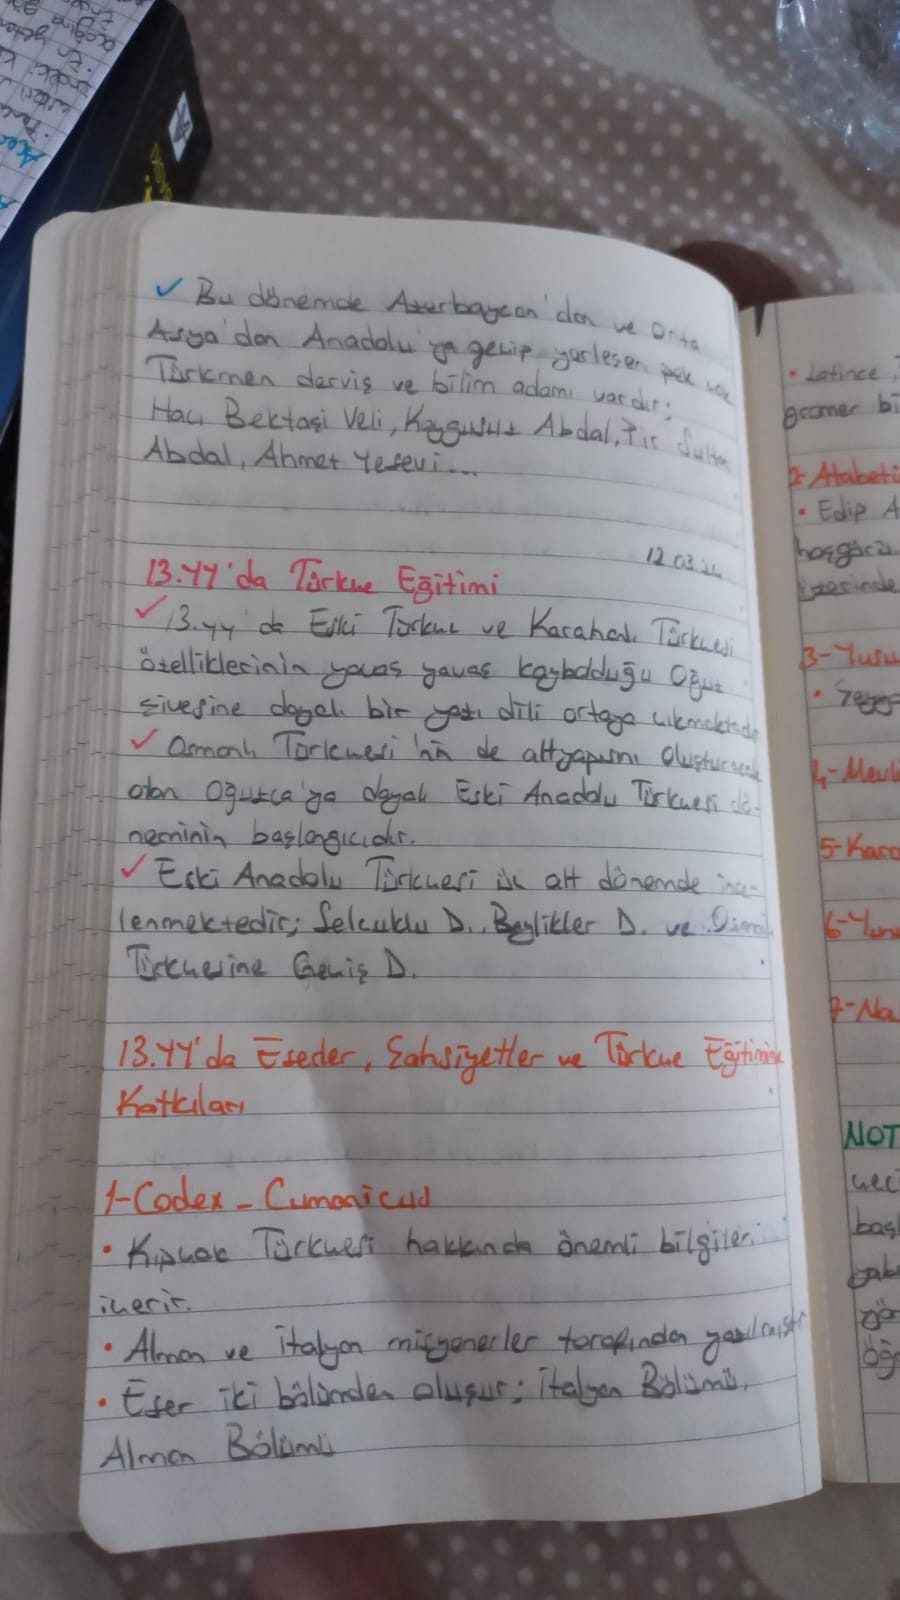 ✓ Bu dönemde Azerbaycan'dan ve Orta
Asya'dan Anadolu'ya gelip yerleşen pek
Türkmen derviş ve bilim adamı vardır;
Hacı Bektaşi Veli, Kaygusuz Abdal, Pir Sultan
Abdal, Ahmet Yesevi...
12.03.24
13.YY'da Türkçe Eğitimi
✓ 13.yy'da Eski Türkçe ve Karahanlı Türkçesi
özelliklerinin yavaş yavaş kaybolduğu Oğuz
şivesine dayalı bir yazı dili ortaya çıkmaktadır
✓ Osmanlı Türkçesi'nin de altyapısını oluşturacak
olan Oğuzca'ya dayalı Eski Anadolu Türkçesi dö-
neminin başlangıcıdır.
✓ Eski Anadolu Türkçesi üç alt dönemde ince-
lenmektedir; Selçuklu D., Beylikler D. ve Osmanlı
Türkçesine Geçiş D.
13.YY'da Eserler, Şahsiyetler ve Türkçe Eğitimine
Katkıları
1-Codex-Cumanicud
• Kıpçak Türkçesi hakkında önemli bilgiler
içerir.
• Alman ve İtalyan misyonerler tarafından yazılmıştır
• Eser iki bölümden oluşur; İtalyan Bölümü,
Alman Bölümü
• Latince
gramer bi
2-Atabeti
• Edip A
hoşgörü
üzerinde
3-Yusu
4-Mevl
5-Kara
6-Yunu
7-Na
NOT